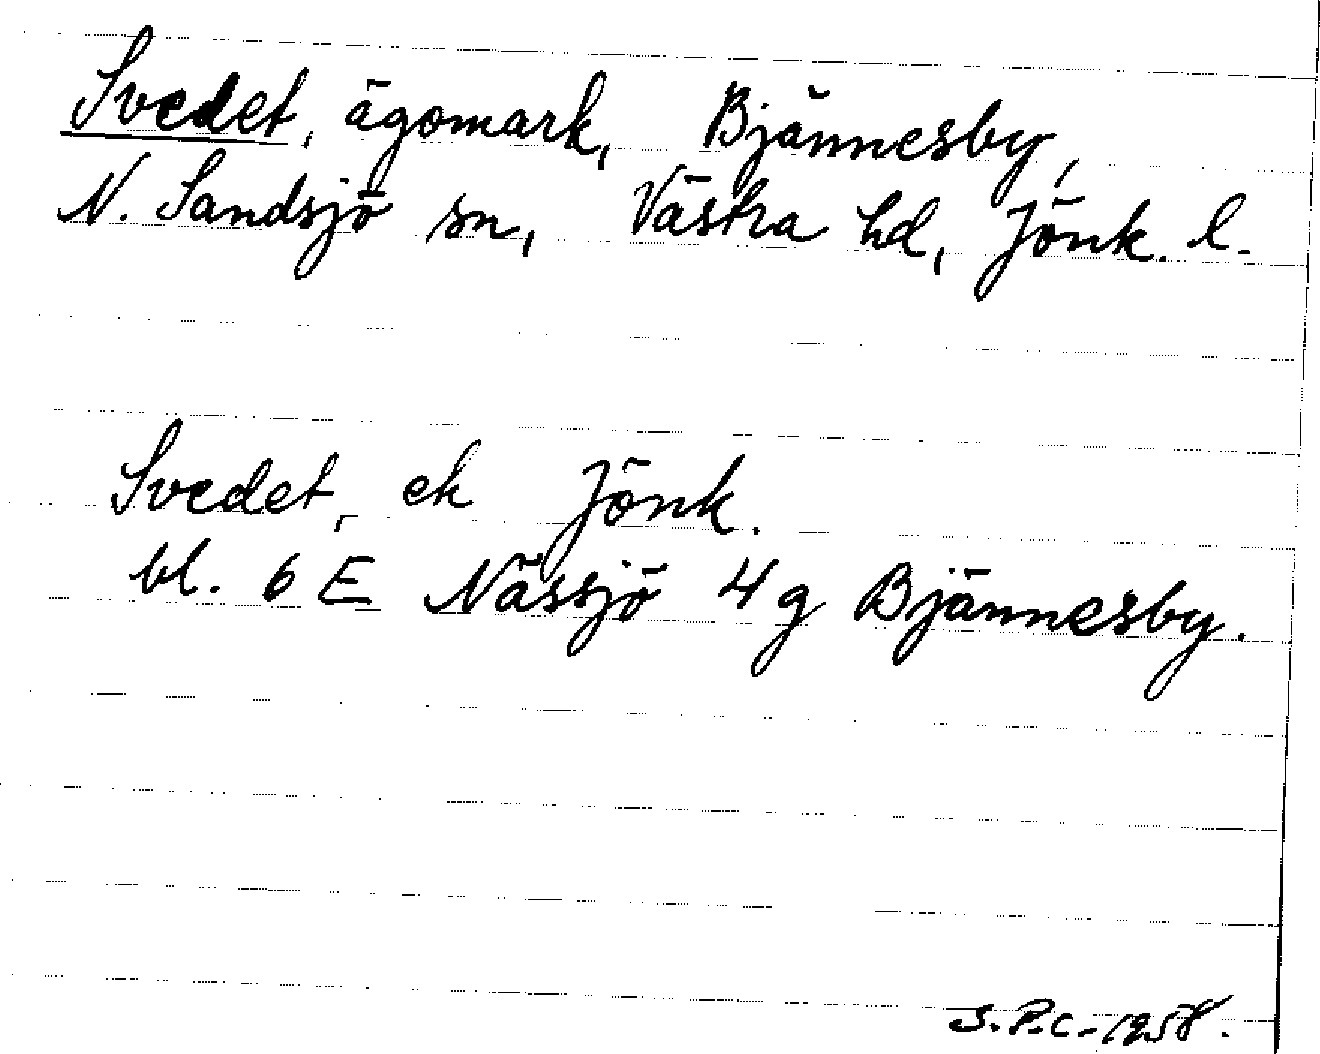 Svedet, ägomark, Bjännesby,
N. Sandsjö sn, Västra hd, Jönk. l.
Svedet, ek Jönk.
bl. 6 E Nässjö 4 g Bjännesby.
S.P.C-1958.